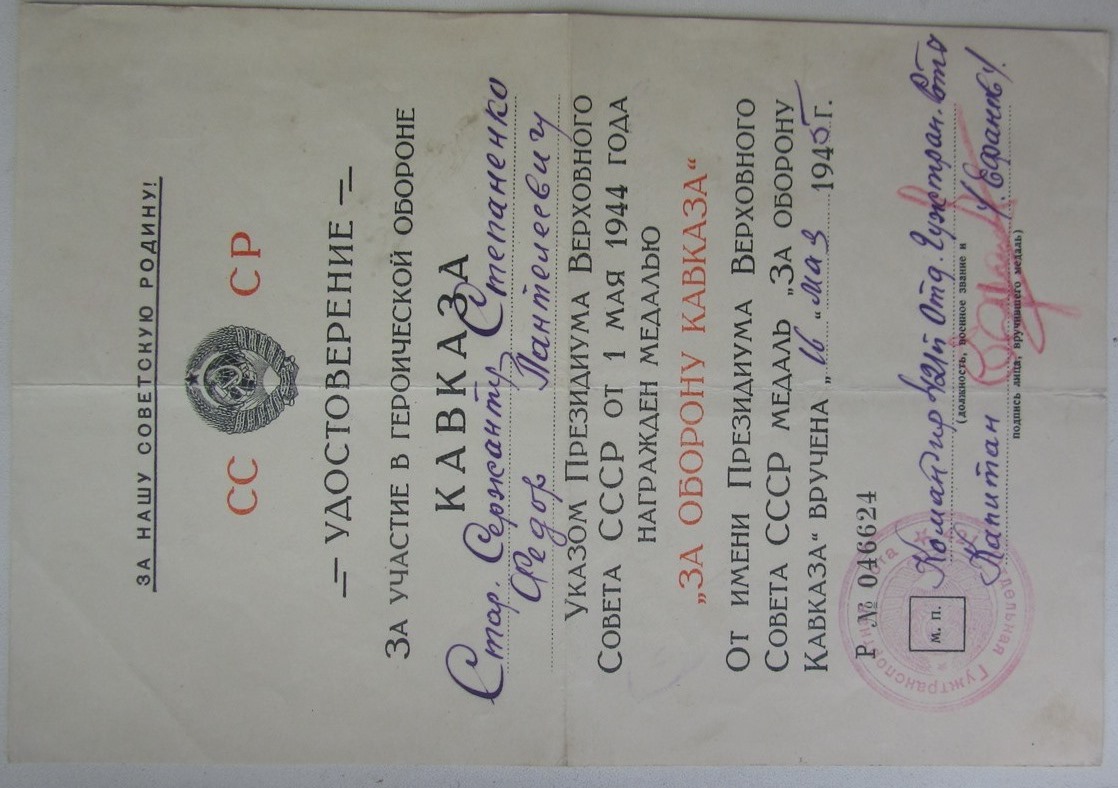 ЗА НАШУ СОВЕТСКУЮ РОДИНУ!
СС СР
УДОСТОВЕРЕНИЕ
ЗА УЧАСТИЕ В ГЕРОИЧЕСКОЙ ОБОРОНЕ
КАВКАЗА
Стар. Сержанту Степаненко
Федор Пантелеевичу
УКАЗОМ ПРЕЗИДИУМА ВЕРХОВНОГО
СОВЕТА СССР ОТ 1 МАЯ 1944 ГОДА
НАГРАЖДЕН МЕДАЛЬЮ
„ЗА ОБОРОНУ КАВКАЗА“
ОТ ИМЕНИ ПРЕЗИДИУМА ВЕРХОВНОГО
СОВЕТА СССР МЕДАЛЬ „ЗА ОБОРОНУ
КАВКАЗА“ ВРУЧЕНА „16“ мая 1945 г.
Р № 046624
М. П.
Командир 421 Отд. Гужтран.
(должность, военное звание и
Капитан
подпись лица, вручившего медаль)